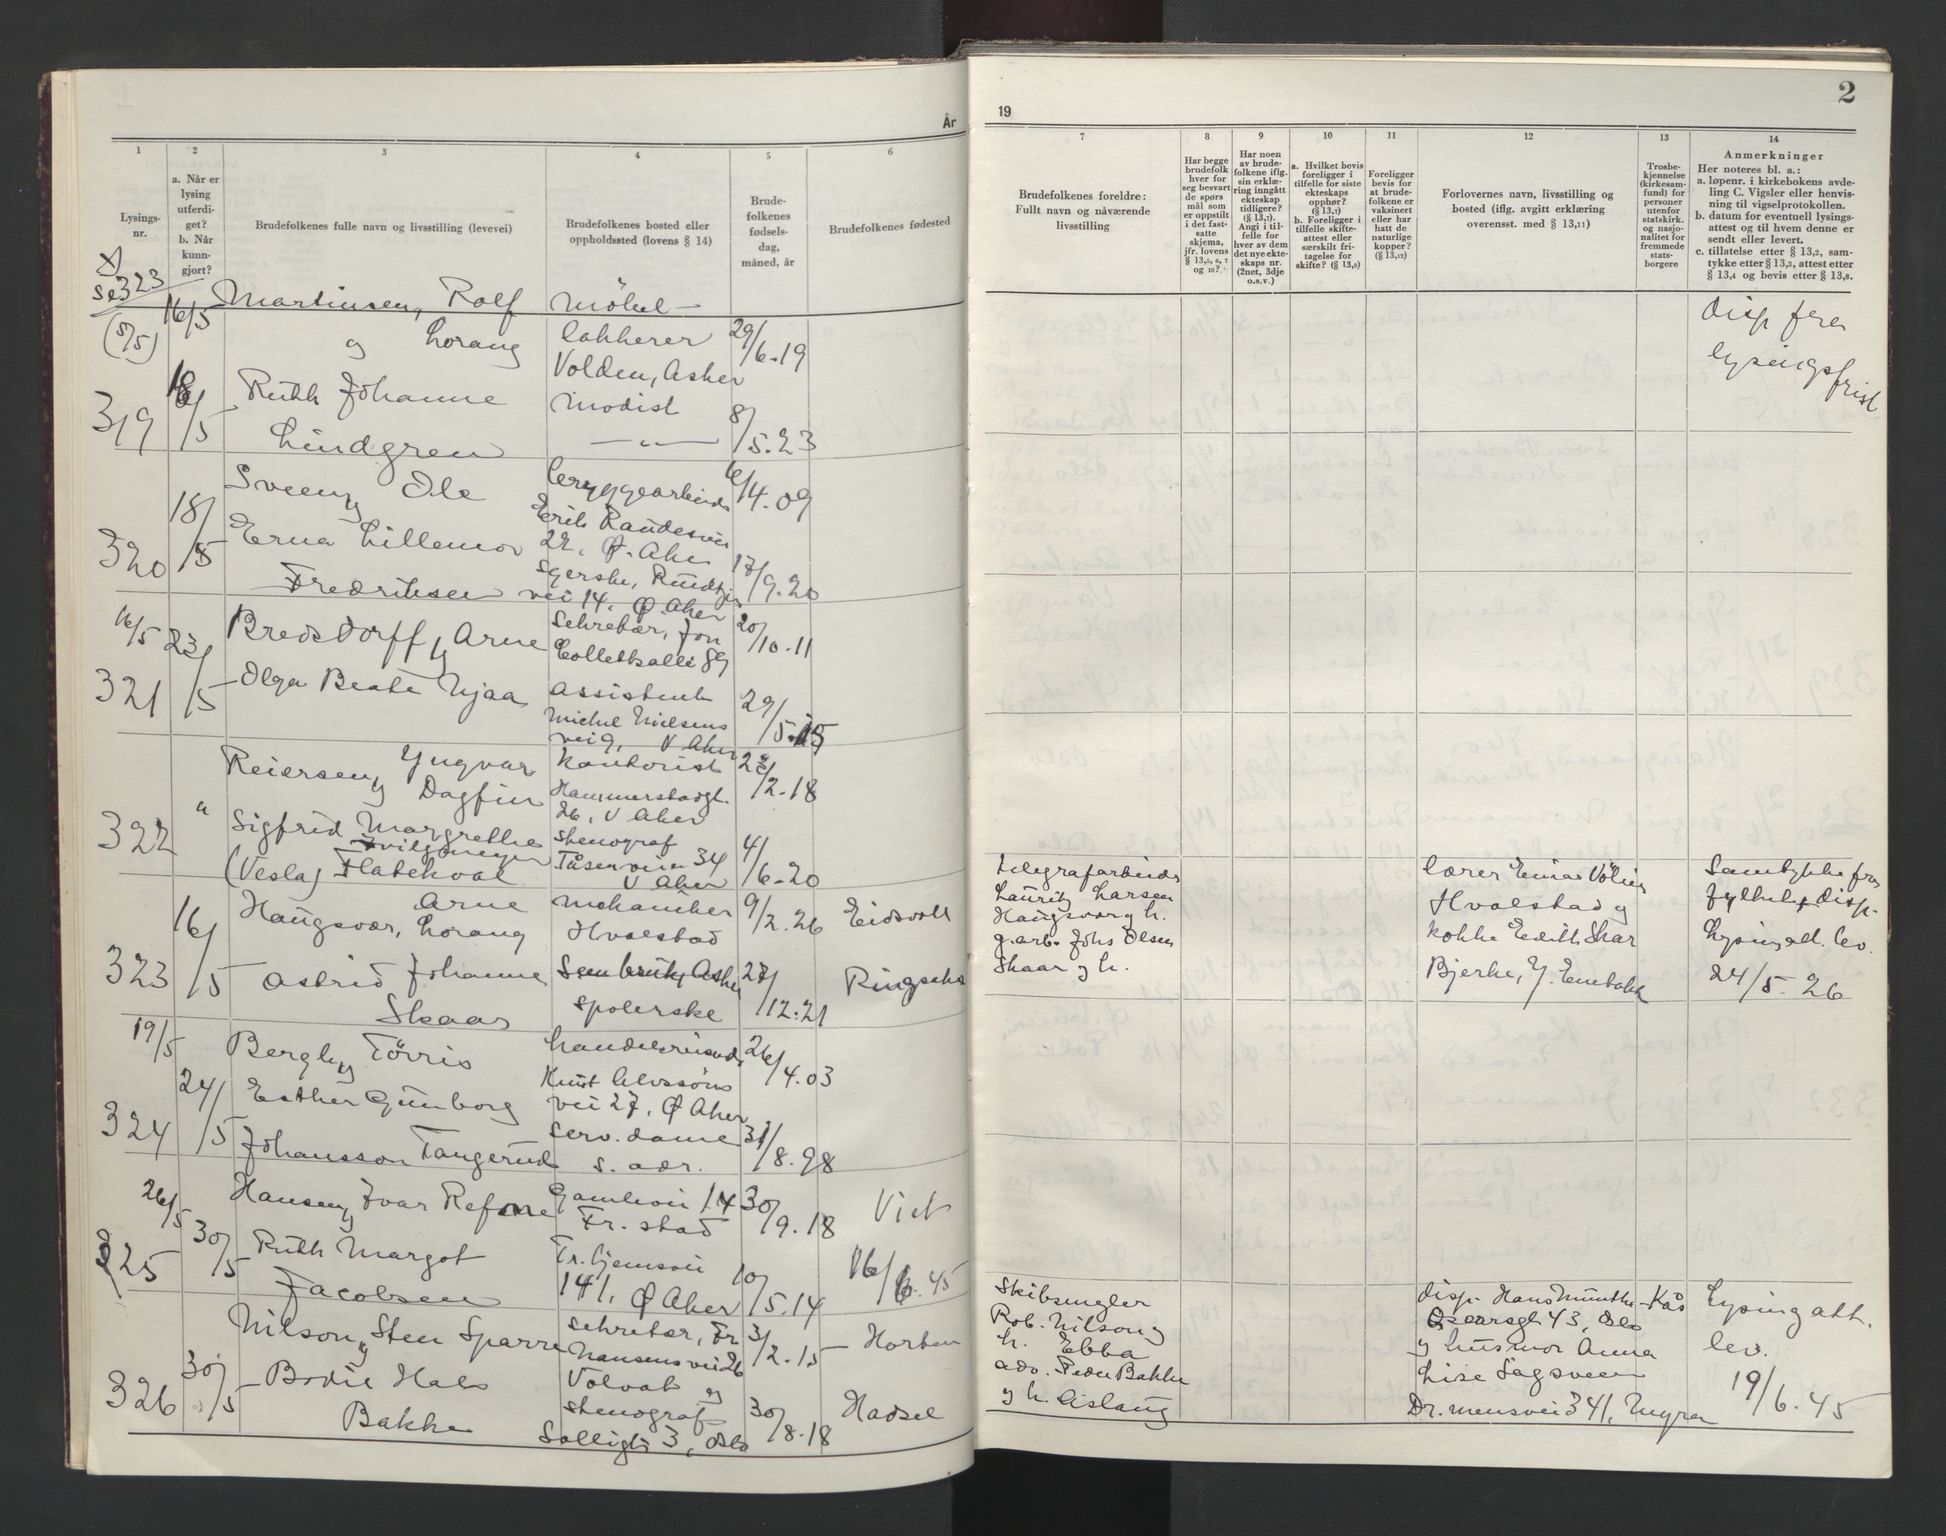 År
1
2
3
4
5
6
Lysings-
nr.
a. Når er
lysing
utferdi-
get?
b. Når
kunn-
gjort?
Brudefolkenes fulle navn og livsstilling (levevei)
Brudefolkenes bosted eller
oppholdssted (lovens § 14)
Brude-
folkenes
fødsels-
dag,
måned, år
Brudefolkenes fødested
x)
se 323
(5/5)
319
16/5
18/5
Martinsen, Rolf
og Lorang
Ruth Johanne
Lindgren
Möbel-
lakkerer
Volden, Asker
Modist
— " —
29/6-19
8/5.23
320
18/5
Sveen, Ole
y
Erna Lillemor
Fredriksen
Erik
22, Ø. Aker
vei 14, Ø. Aker
6/4.09
17/9.20
321
16/5 23/5
Bredsdorff y Arne
Olga Beate Njaa
Sekretær, Jon
Colletts alle 89
Assistent
Nielsens
vei 9, V Aker
20/10.11
29/5.15
322
"
Reiersen, Yngvar
y Dagfin
Sigfrid Margrethe
(Vesla) Flatekval
Kontorist
Hammerstadgt.
26, V Aker
stenograf
Tåsenveien 34
V Aker
2.18
4/6-20
323
16/5
Arne
Haugsvær, Lorang
Astrid Johanne
Skaar
mekaniker
Hvalstad
spolerske
9/2.26
27/12.21
Eidsvoll
324
19/5
24/5
Bergh, Törris
y
Esther Gunborg
Johansson Tangerud
Knut Alvssöns
vei 27, Ø Aker
serv. dame
s. adr.
26/4.03
31/8.98
325
26/5
30/5
Hansen, Ivar
y
Ruth Margot
Jacobsen
Gamlevei 14
Fr. stad
141, Ø Aker
30/9.18
10/5.14
Viet
16/6.45
326
30/5
Nilson, Sten Sparre
y
Bodil Hals
Bakke
sekretær, Fr
Nansensvei 26
Volvat y
stenograf
Solligt. 3, Oslo
3/2-15
30/8.18
Horten
Hadsel
19
2
7
8
9
10
11
12
13
14
Brudefolkenes foreldre:
Fullt navn og nåværende
livsstilling
Har begge
brudefolk
hver for
seg besvart
de spørs
mål som
er oppstilt
i det fast-
satte
skjema,
jfr. lovens
§ 13,5, 6, 7
og 10?
Har noen
av brude-
folkene iflg.
sin erklæ-
ring inngått
ekteskap
tidligere?
(§ 13,7).
Angi i til-
felle for
hver av dem
det nye ekte-
skaps nr.
(2net, 3dje
o.s.v.)
a. Hvilket bevis
foreligger i
tilfelle for siste
ekteskaps
opphør?
(§ 13,7)
b. Foreligger i
tilfelle skifte-
attest eller
særskilt fri-
tagelse for
skifte? (§ 13,9)
Foreligger
bevis for
at brude-
folkene er
vaksinert
eller har
hatt de
naturlige
kopper?
(§ 13,12)
Forlovernes navn, livsstilling og
bosted (iflg. avgitt erklæring
overensst. med § 13,11)
Trosbe-
kjennelse
(kirkesam-
fund) for
personer
utenfor
statskirk.
og nasjo-
nalitet for
fremmede
stats-
borgere
Anmerkninger
Her noteres bl. a.:
a. løpenr. i kirkebokens avde-
ling C. Vigsler eller henvis-
ning til vigselprotokollen.
b. datum for eventuell lysings-
attest og til hvem denne er
sendt eller levert.
c. tillatelse etter § 13,2, sam-
tykke etter § 13,3, attest etter
§ 13,4 og bevis etter § 13,8.
Disp fra
lysingsfrist
telegrafarbeider
Lauritz Larsen
Haugsvær y h.
g.arb. Johs Olsen
Skaar y h.
lærer Einar
Hvalstad y
kokke Edith Skar
Bjerke, Y. Enebakk
Samtykke fra
fylket, disp.
Lysingatt. lev.
24/5.26
Skibsmegler
Rob. Nilson y
h. Ebba
adv. Peder Bakke
y h. Aslaug
disp. Hans Munthe-Kås
Oscarsgt 43, Oslo
y husmor Anna
Lise Sagsveen
34
Lysingatt.
lev.
19/6.45